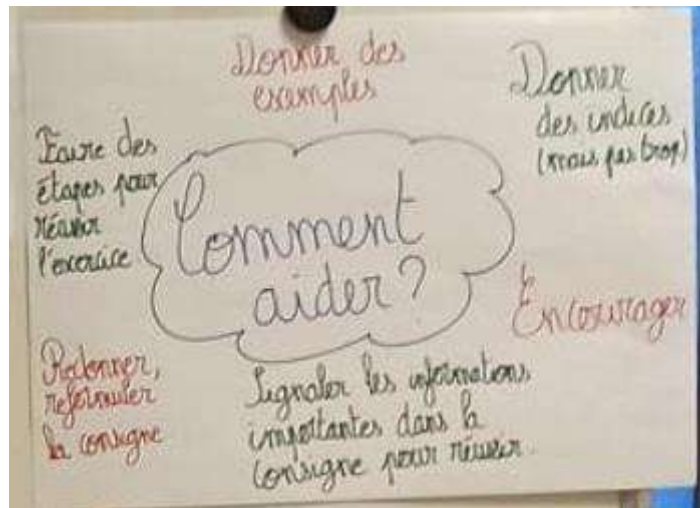 Donner des
exemples
Donner
des indices
(mais pas trop)
Faire des
étapes pour
réussir
l'exercice
Comment
aider ?
Encourager
Redonner,
reformuler
la consigne
Signaler les informations
importantes dans la
consigne pour réussir.